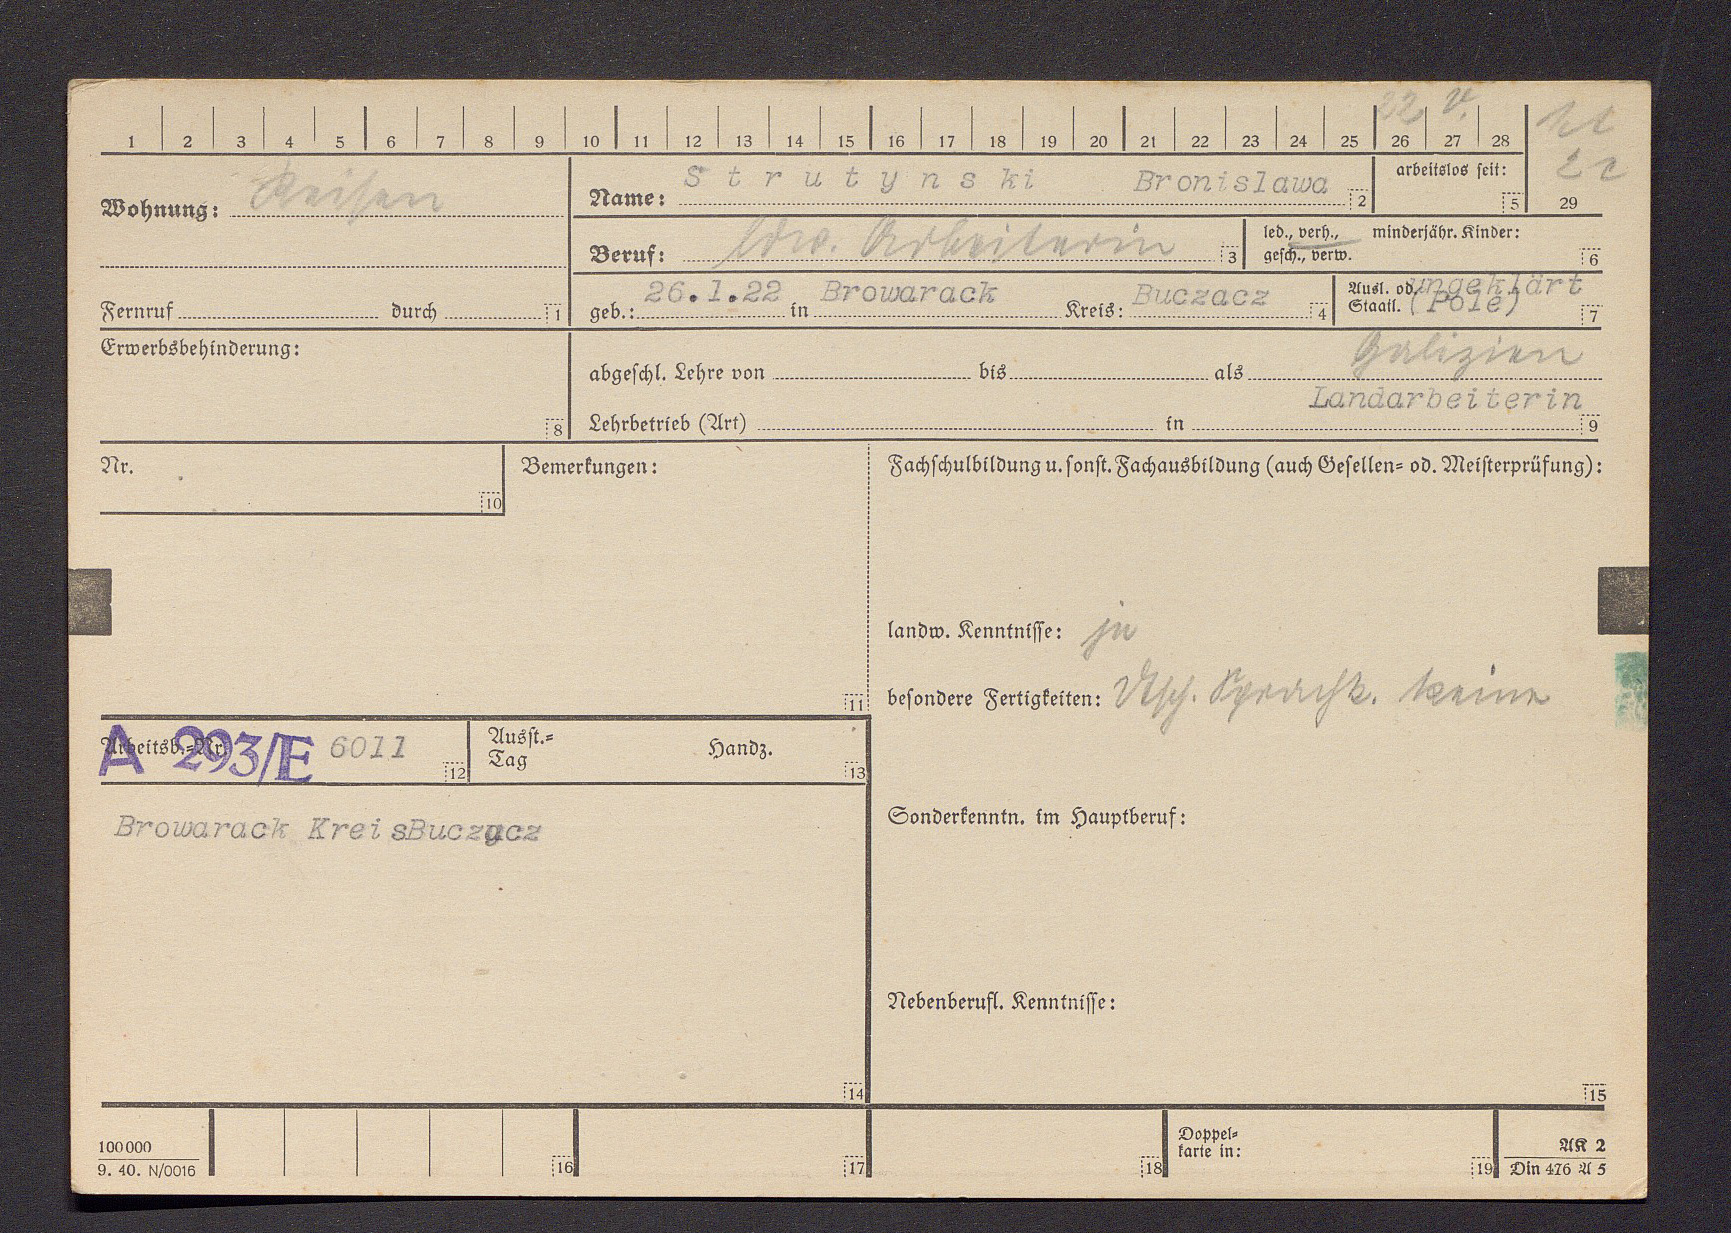 22 V.
1 2 3 4 5 6 7 8 9 10 11 12 13 14 15 16 17 18 19 20 21 22 23 24 25 26 27 28
Wohnung: Reisen
Name: Strutynski Bronislawa 2
arbeitslos seit: 5
29
Beruf: ldw. Arbeiterin 3
led., verh., minderjähr. Kinder:
gesch., verw. 6
Fernruf durch 1
geb.: 26.1.22 in Browarack Kreis: Buczacz 4
Ausl. od. ungeklärt
Staatl. (Pole) 7
Erwerbsbehinderung:
8
Galizien
abgeschl. Lehre von bis als
Landarbeiterin
Lehrbetrieb (Art) in 9
Nr.
10
Bemerkungen:
11
Fachschulbildung u. sonst. Fachausbildung (auch Gesellen= od. Meisterprüfung):
landw. Kenntnisse: ja
besondere Fertigkeiten: Dtsch. Sprachk. keine
Arbeitsb.=Nr. A 293/E 6011 12
Ausst.=
Tag Handz.
13
Browarack KreisBuczacz
14
Sonderkenntn. im Hauptberuf:
Nebenberufl. Kenntnisse:
15
100 000
9. 40. N/0016
16
17
18
Doppel=
karte in:
19
AK 2
Din 476 A 5